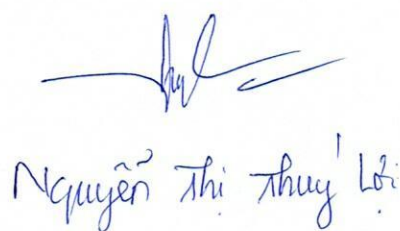 Nguyễn Thị Thuý Lợi